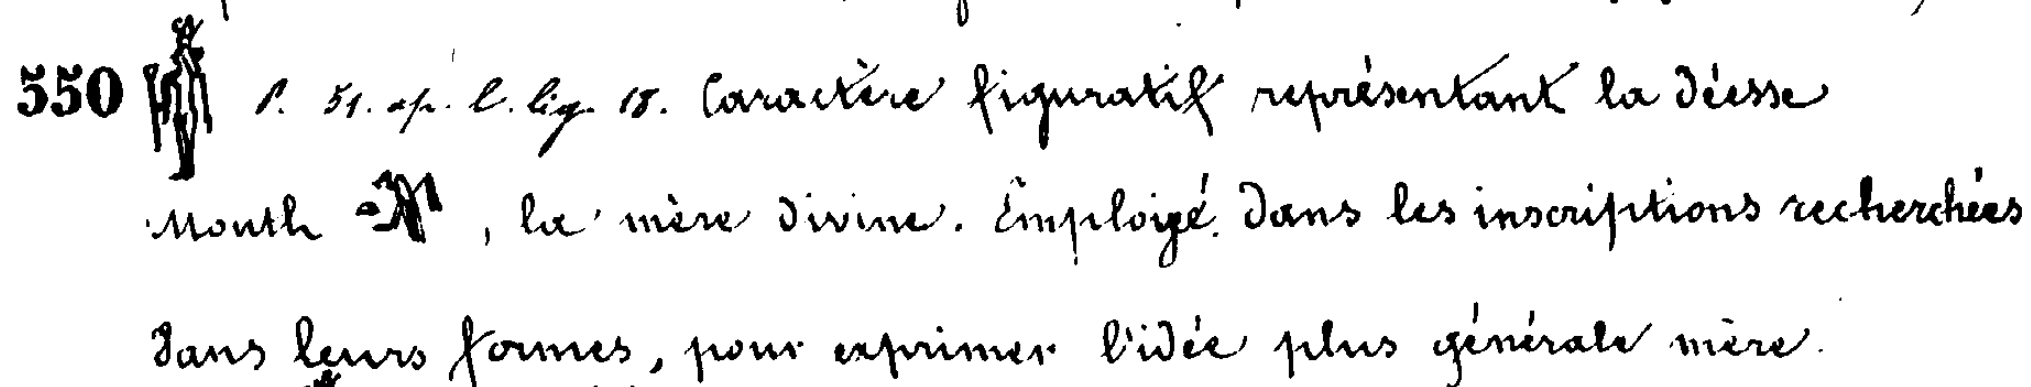 550 P. 51. ap. l. lig. 18. Caractère figuratif représentant la déesse
Mouth , la mère divine. Employé. dans les inscriptions recherchées
dans leurs formes, pour exprimer l'idée plus générale mère.